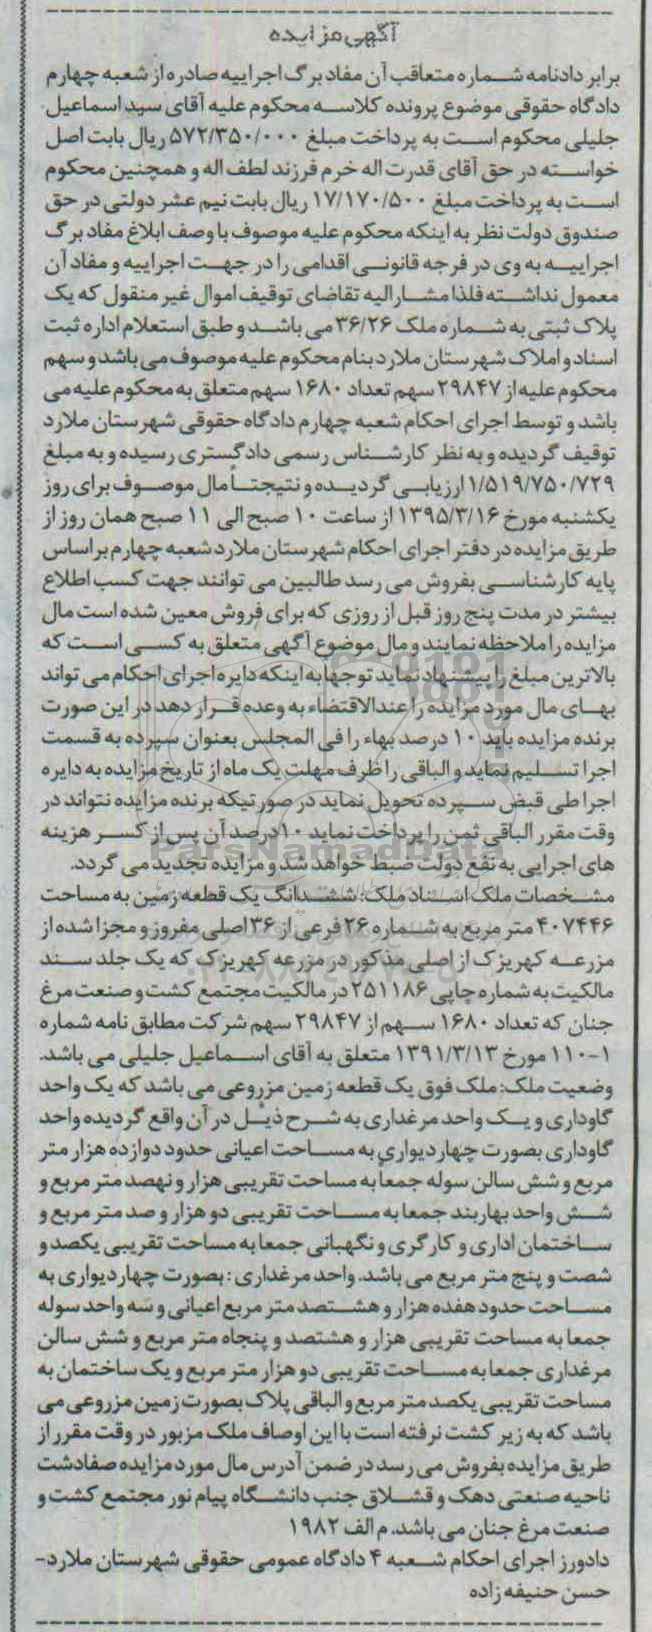 آگهی مزایده
برابر دادنامه شماره متعاقب آن مفاد برگ اجراییه صادره از شعبه چهارم
دادگاه حقوقی موضوع پرونده کلاسه محکوم علیه آقای سید اسماعیل
جلیلی محکوم است به پرداخت مبلغ ۵۷۲/۳۵۰/۰۰۰ ریال بابت اصل
خواسته در حق آقای قدرت اله خرم فرزند لطف اله و همچنین محکوم
است به پرداخت مبلغ ۱۷/۱۷۰/۵۰۰ ریال بابت نیم عشر دولتی در حق
صندوق دولت نظر به اینکه محکوم علیه موصوف با وصف ابلاغ مفاد برگ
اجراییه به وی در فرجه قانونی اقدامی را در جهت اجراییه و مفاد آن
معمول نداشته فلذا مشارالیه تقاضای توقیف اموال غیر منقول که یک
پلاک ثبتی به شماره ملک ۳۶/۲۶ می باشد و طبق استعلام اداره ثبت
اسناد و املاک شهرستان ملارد بنام محکوم علیه موصوف می باشد و سهم
محکوم علیه از ۲۹۸۴۷ سهم تعداد ۱۶۸۰ سهم متعلق به محکوم علیه می
باشد و توسط اجرای احکام شعبه چهارم دادگاه حقوقی شهرستان ملارد
توقیف گردیده و به نظر کارشناس رسمی دادگستری رسیده و به مبلغ
۱/۵۱۹/۷۵۰/۷۲۹ ارزیابی گردیده و نتیجتاً مال موصوف برای روز
یکشنبه مورخ ۱۳۹۵/۳/۱۶ از ساعت ۱۰ صبح الی ۱۱ صبح همان روز از
طریق مزایده در دفتر اجرای احکام شهرستان ملارد شعبه چهارم براساس
پایه کارشناسی بفروش می رسد طالبین می توانند جهت کسب اطلاع
بیشتر در مدت پنج روز قبل از روزی که برای فروش معین شده است مال
مزایده را ملاحظه نمایند و مال موضوع آگهی متعلق به کسی است که
بالاترین مبلغ را پیشنهاد نماید توجهاً به اینکه دایره اجرای احکام می تواند
بهای مال مورد مزایده را عندالاقتضاء به وعده قرار دهد در این صورت
برنده مزایده باید ۱۰ درصد بهاء را فی المجلس بعنوان سپرده به قسمت
اجرا تسلیم نماید و الباقی را ظرف مهلت یک ماه از تاریخ مزایده به دایره
اجرا طی قبض سپرده تحویل نماید در صورتیکه برنده مزایده نتواند در
وقت مقرر الباقی ثمن را پرداخت نماید ۱۰درصد آن پس از کسر هزینه
های اجرایی به نفع دولت ضبط خواهد شد و مزایده تجدید می گردد.
مشخصات ملک اسناد ملک: ششدانگ یک قطعه زمین به مساحت
۴۰۷۴۴۶ متر مربع به شماره ۲۶ فرعی از ۳۶ اصلی مفروز و مجزا شده از
مزرعه کهریزک از اصلی مذکور در مزرعه کهریزک که یک جلد سند
مالکیت به شماره چاپی ۲۵۱۱۸۶ در مالکیت مجتمع کشت و صنعت مرغ
جنان که تعداد ۱۶۸۰ سهم از ۲۹۸۴۷ سهم شرکت مطابق نامه شماره
۱۱۰-۱ مورخ ۱۳۹۱/۳/۱۳ متعلق به آقای اسماعیل جلیلی می باشد.
وضعیت ملک: ملک فوق یک قطعه زمین مزروعی می باشد که یک واحد
گاوداری و یک واحد مرغداری به شرح ذیل در آن واقع گردیده واحد
گاوداری بصورت چهار دیواری به مساحت اعیانی حدود دوازده هزار متر
مربع و شش سالن سوله جمعاً به مساحت تقریبی هزار و نهصد متر مربع و
شش واحد بهاربند جمعا به مساحت تقریبی دو هزار و صد متر مربع و
ساختمان اداری و کارگری و نگهبانی جمعا به مساحت تقریبی یکصد و
شصت و پنج متر مربع می باشد. واحد مرغداری: بصورت چهار دیواری به
مساحت حدود هفده هزار و هشتصد متر مربع اعیانی و سه واحد سوله
جمعا به مساحت تقریبی هزار و هشتصد و پنجاه متر مربع و شش سالن
مرغداری جمعا به مساحت تقریبی دو هزار متر مربع و یک ساختمان به
مساحت تقریبی یکصد متر مربع و الباقی پلاک بصورت زمین مزروعی می
باشد که به زیر کشت نرفته است با این اوصاف ملک مزبور در وقت مقرر از
طریق مزایده بفروش می رسد در ضمن آدرس مال مورد مزایده صفادشت
ناحیه صنعتی دهک و قشلاق جنب دانشگاه پیام نور مجتمع کشت و
صنعت مرغ جنان می باشد. م الف ۱۹۸۲
دادورز اجرای احکام شعبه ۴ دادگاه عمومی حقوقی شهرستان ملارد-
حسن حنیفه زاده
ParsNamadData